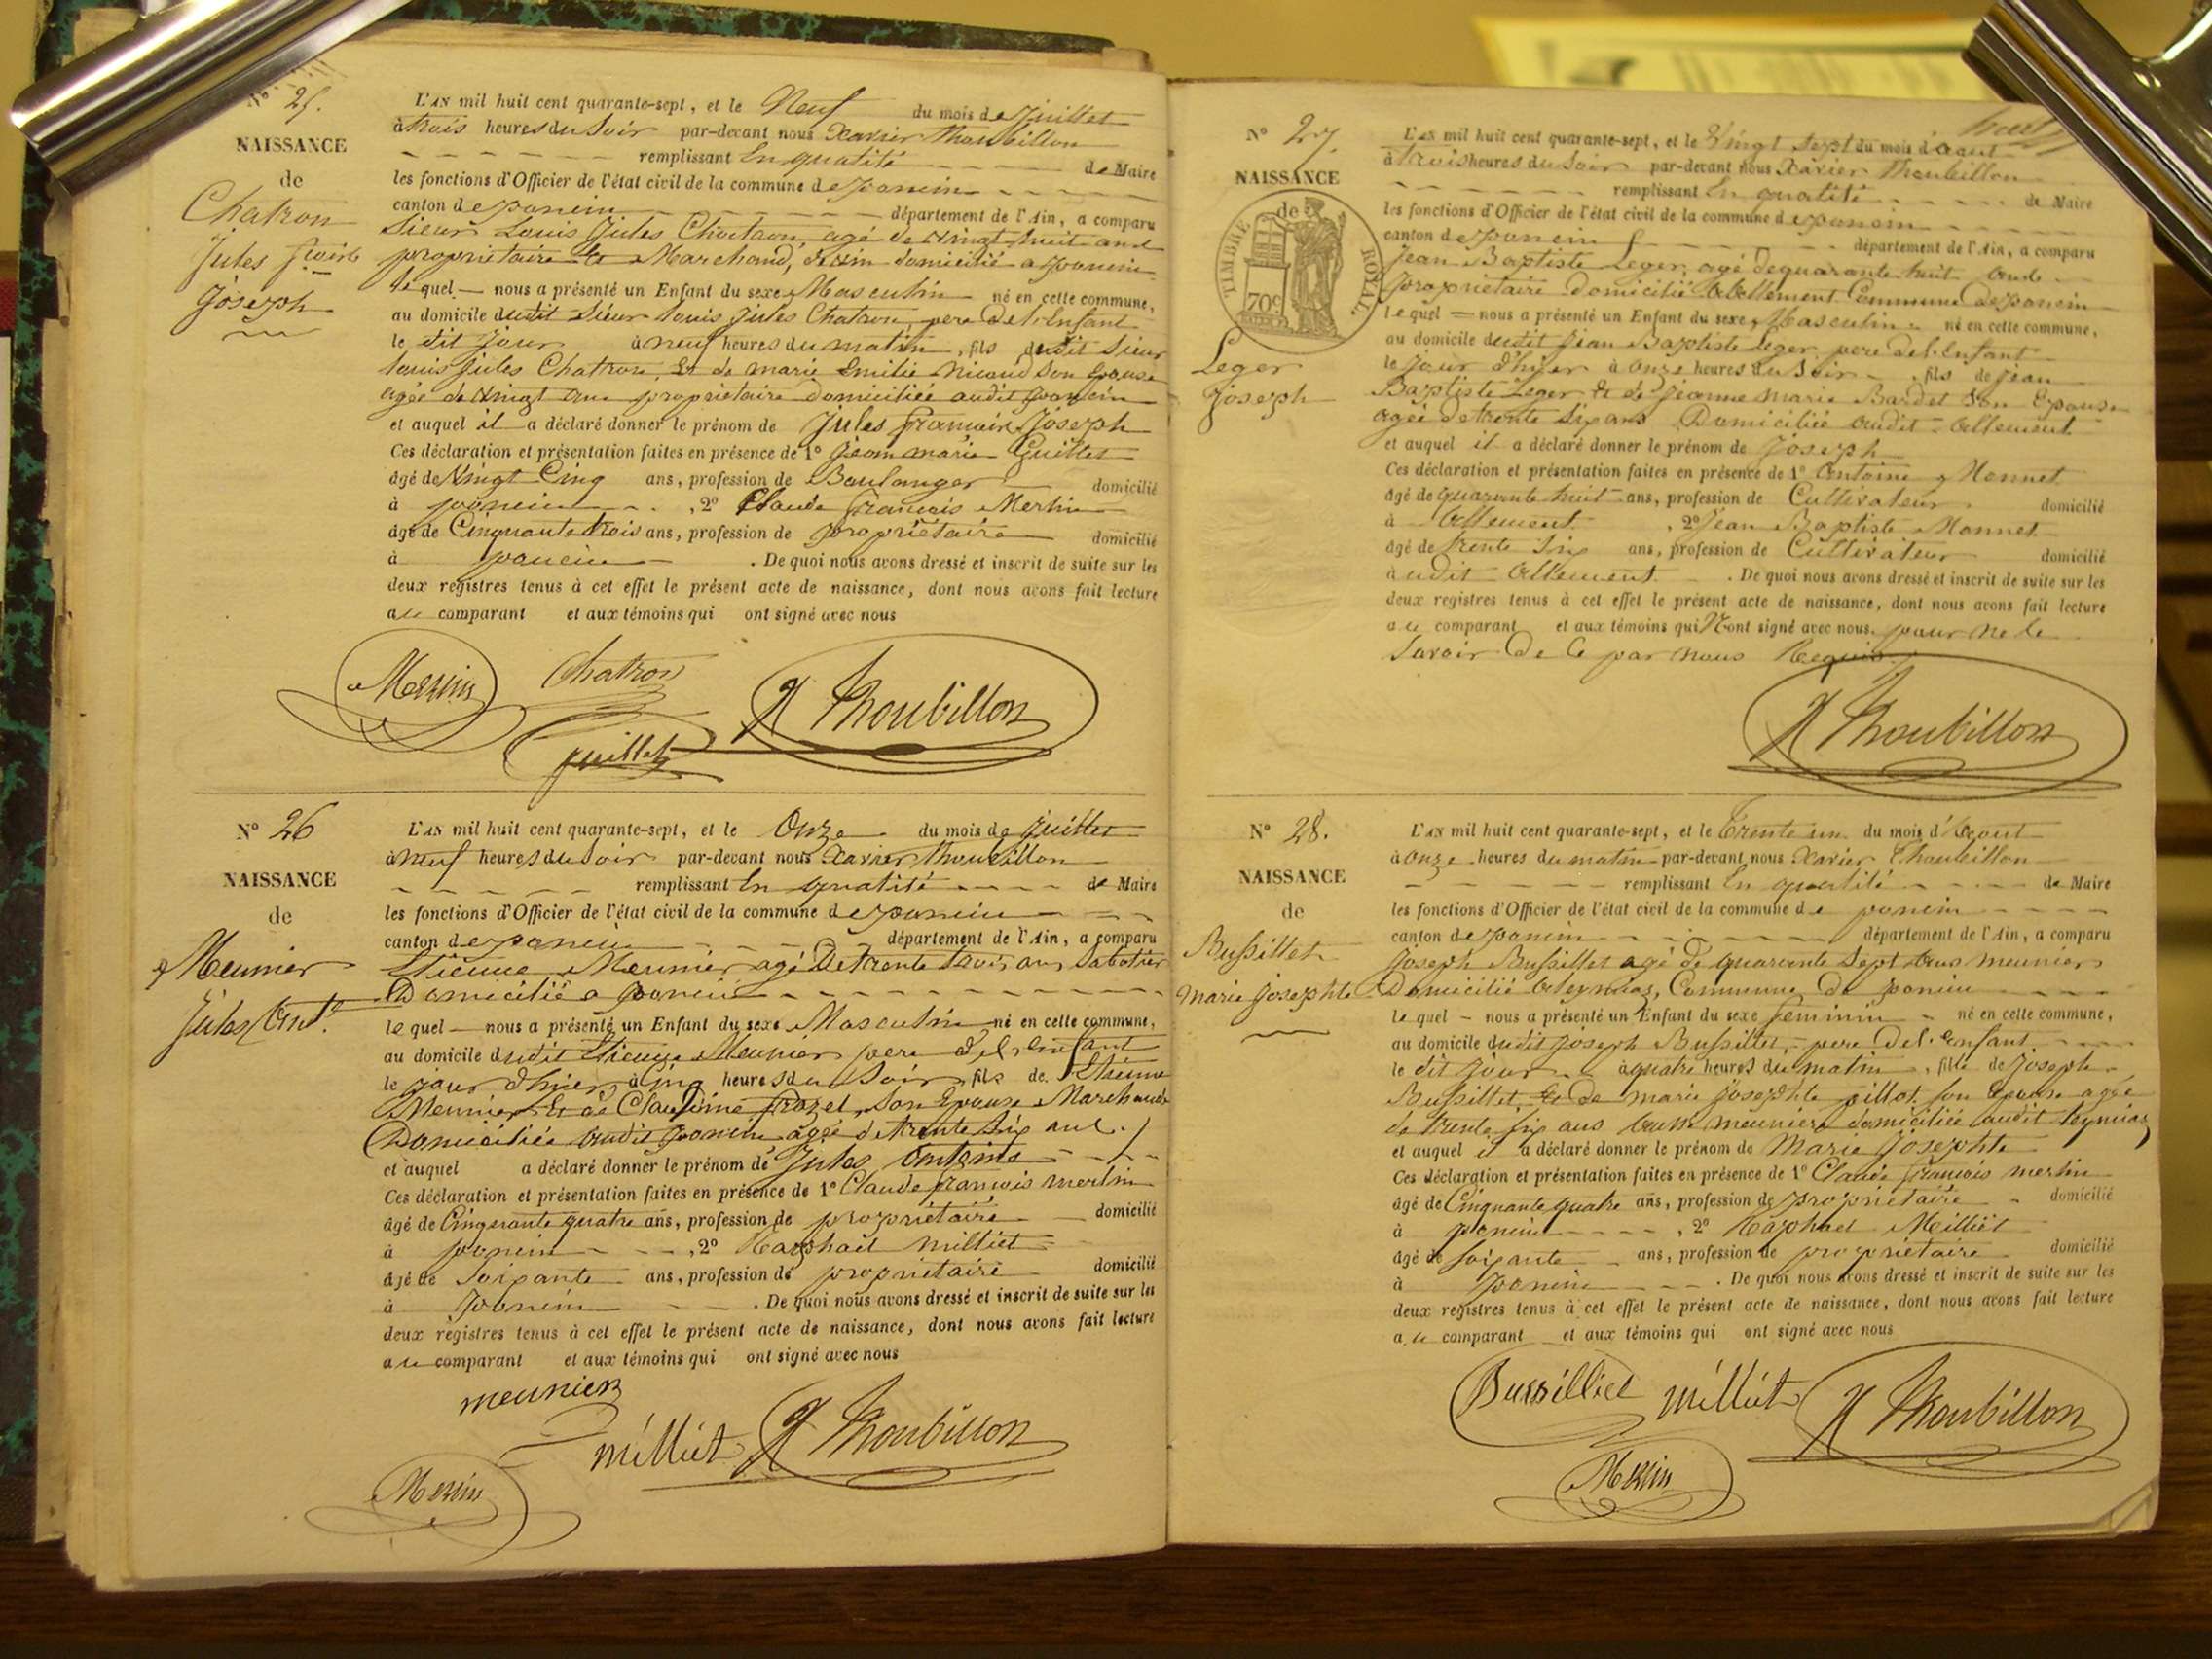 N° 25.
NAISSANCE
de
Chatron
Jules
Joseph
L'AN mil huit cent quarante-sept, et le Neuf du mois de Juillet
à trois heures du Soir par-devant nous Xavier Thoubillon
remplissant En qualité de Maire
les fonctions d'Officier de l'état civil de la commune de poncin
canton de poncin département de l'Ain, a comparu
Sieur Louis Jules Chatron agé de vingt huit ans
propriétaire et Marchand, de vin domicilié a poncin
le quel nous a présenté un Enfant du sexe Masculin né en cette commune,
au domicile dudit Sieur Louis Jules Chatron pere De l'Enfant
le dit Jour à neuf heures du matin, fils dudit Sieur
Louis Jules Chatron, Et de marie Emilie Nicaud Son Epouse
agée de vingt ans propriétaire domiciliée audit poncin
et auquel il a déclaré donner le prénom de Jules François Joseph
Ces déclaration et présentation faites en présence de 1° Jean marie Guillet
âgé de Vingt Cinq ans, profession de Boulanger domicilié
à poncin, 2° Claude François Merlin
âgé de Cinquante trois ans, profession de propriétaire domicilié
à poncin. De quoi nous avons dressé et inscrit de suite sur les
deux registres tenus à cet effet le présent acte de naissance, dont nous avons fait lecture
au comparant et aux témoins qui ont signé avec nous
Merlin Chatron X Thoubillon
Guillet
N° 26
NAISSANCE
de
Meunier
Jules Ant.
L'AN mil huit cent quarante-sept, et le Onze du mois de Juillet
à neuf heures du Soir par-devant nous Xavier Thoubillon
remplissant En qualité de Maire
les fonctions d'Officier de l'état civil de la commune de poncin
canton de poncin département de l'Ain, a comparu
Etienne Meunier agé De trente trois ans Sabotier
Domicilié a poncin
le quel nous a présenté un Enfant du sexe Masculin né en cette commune,
au domicile dudit Etienne Meunier pere de l'Enfant
le jour d'hier à Cinq heures du Soir, fils de Etienne
Meunier Et de Claudine Son Epouse Marchande
Domiciliée audit poncin agée de trente Six ans.
et auquel a déclaré donner le prénom de Jules Antoine
Ces déclaration et présentation faites en présence de 1° Claude françois merlin
âgé de Cinquante quatre ans, profession de propriétaire domicilié
à poncin, 2° Raphaël Milliet
âgé de Soixante ans, profession de propriétaire domicilié
à poncin. De quoi nous avons dressé et inscrit de suite sur les
deux registres tenus à cet effet le présent acte de naissance, dont nous avons fait lecture
au comparant et aux témoins qui ont signé avec nous
meunier
Milliet X Thoubillon
Merlin
N° 27.
NAISSANCE
de
TIMBRE ROYAL
70c
Leger
Joseph
L'AN mil huit cent quarante-sept, et le Vingt Sept du mois d'aout
à trois heures du Soir par-devant nous Xavier Thoubillon
remplissant En qualité de Maire
les fonctions d'Officier de l'état civil de la commune de poncin
canton de poncin département de l'Ain, a comparu
Jean Baptiste Leger, agé de quarante huit ans
propriétaire Domicilié à Allement Commune De poncin
le quel nous a présenté un Enfant du sexe Masculin né en cette commune,
au domicile dudit Jean Baptiste Leger pere de l'Enfant
le Jour d'hier à Onze heures du Soir, fils de Jean
Baptiste Leger Et de Jeanne marie Bardet Son Epouse
agée de trente Six ans Domiciliée audit Allement
et auquel il a déclaré donner le prénom de Joseph
Ces déclaration et présentation faites en présence de 1° Antoine Monnet
âgé de quarante huit ans, profession de Cultivateur domicilié
à Allement, 2° Jean Baptiste Monnet
âgé de trente Six ans, profession de Cultivateur domicilié
à udit Allement. De quoi nous avons dressé et inscrit de suite sur les
deux registres tenus à cet effet le présent acte de naissance, dont nous avons fait lecture
au comparant et aux témoins qui N'ont signé avec nous. pour ne le
Savoir De Ce par nous Requis
X Thoubillon
N° 28.
NAISSANCE
de
Bussillet
Marie Josephte
L'AN mil huit cent quarante-sept, et le Trente un du mois d'Aout
à Onze heures du matin par-devant nous Xavier Thoubillon
remplissant En qualité de Maire
les fonctions d'Officier de l'état civil de la commune de poncin
canton de poncin département de l'Ain, a comparu
Joseph Bussillet agé de quarante Sept ans meunier
Domicilié à Leymiaz, Commune De poncin
le quel nous a présenté un Enfant du sexe feminin né en cette commune,
au domicile dudit Joseph Bussillet, pere De l'enfant
le dit Jour à quatre heures du matin, fille de Joseph
Bussillet, Et De marie Josephte pillot son Epouse agée
de trente six ans aussi meuniere domiciliée audit Leymiaz
et auquel il a déclaré donner le prénom de Marie Josephte
Ces déclaration et présentation faites en présence de 1° Claude françois merlin
âgé de Cinquante quatre ans, profession de propriétaire domicilié
à poncin, 2° Raphael Milliet
âgé de Soixante ans, profession de propriétaire domicilié
à poncin. De quoi nous avons dressé et inscrit de suite sur les
deux registres tenus à cet effet le présent acte de naissance, dont nous avons fait lecture
au comparant et aux témoins qui ont signé avec nous
Bussilliet Milliet X Thoubillon
Merlin